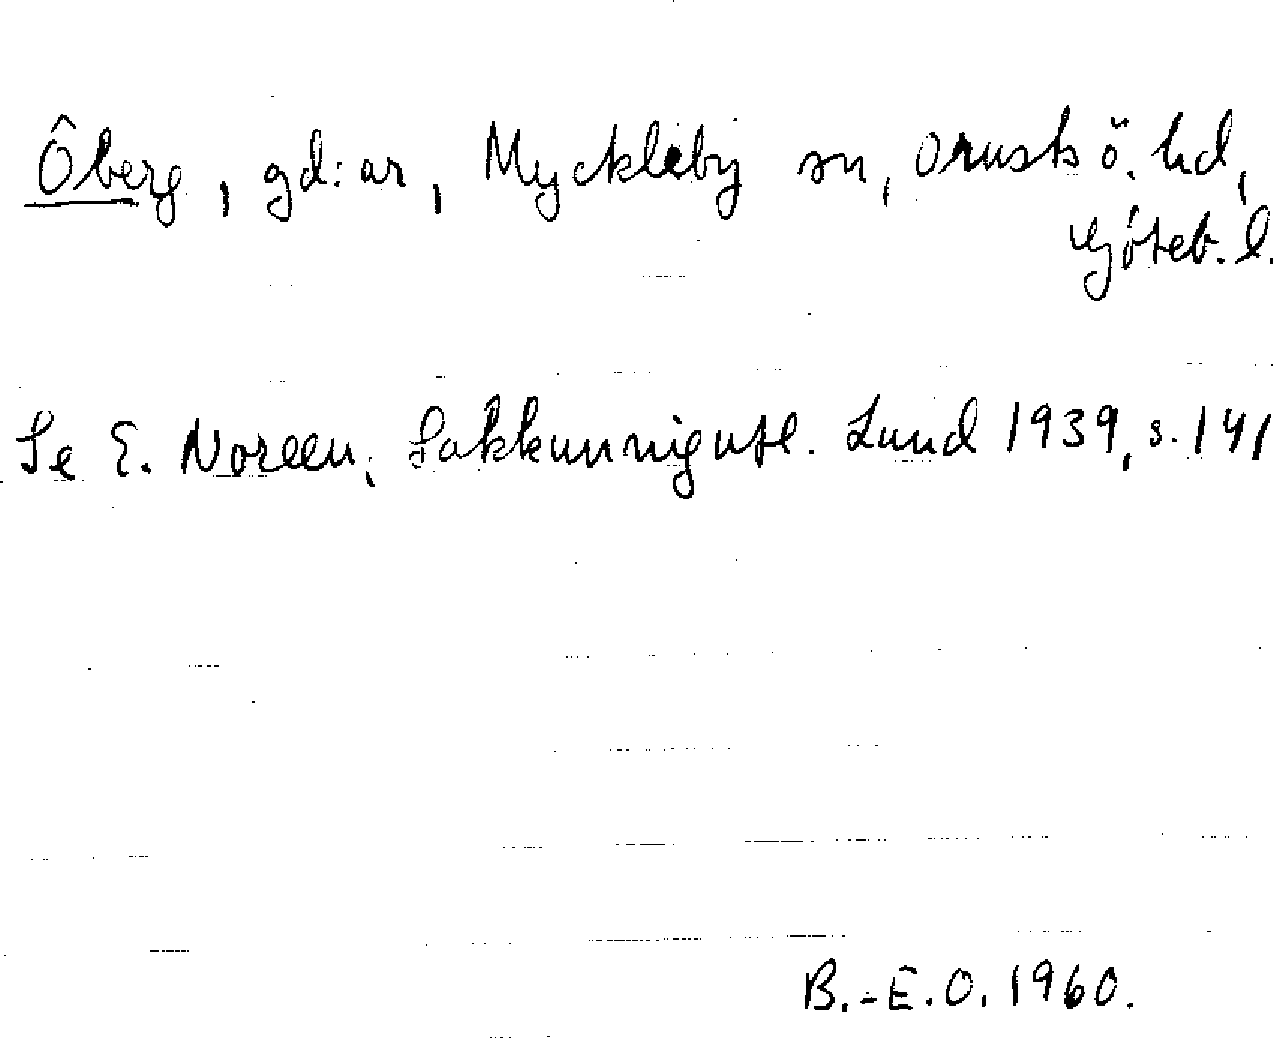 Öberg, gd:ar, Myckleby sn, Orusts ö. hd,
Göteb. l.
Se E. Noreen, Sakkunnigutl. Lund 1939, s. 141
B.-E.O. 1960.